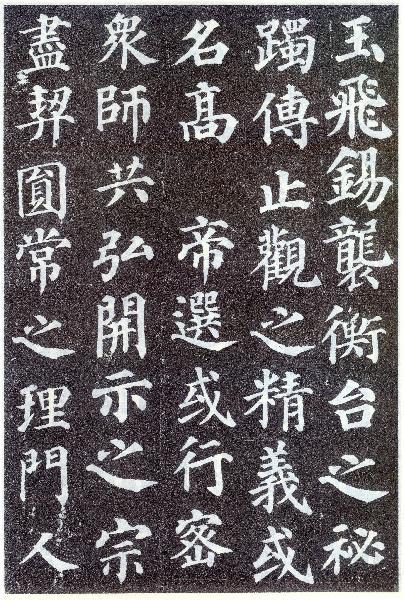 玉飛錫襲衡台之祕
躅傳止觀之精義或
名髙 帝選或行宻
衆師共弘開示之宗
盡契圎常之理門人